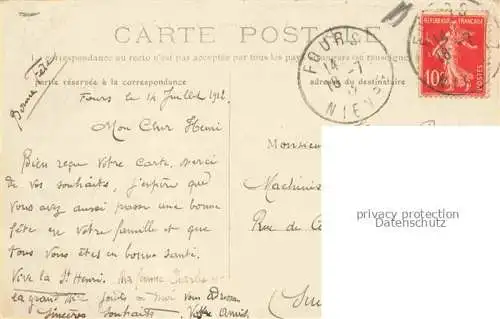 CARTE POSTALE
La correspondance au recto n'est pas acceptée par tous les pays étrangers (se renseigner
partie réservée à la correspondance
adresse du destinataire
FOURS
14 -7
NIEVRE
REPUBLIQUE FRANÇAISE
10
POSTES
Bonne Fête
Fours le 14 Juillet 1912.
Mon Cher Henri
Bien reçu votre carte. merci
de vos souhaits, j'espère que
vous avez aussi passé une bonne
fête en votre famille et que
tous vous êtes en bonne santé.
Vive la St Henri. Ma femme
la grand joints à moi vous
sincères souhaits. Votre Ami
Monsieur
Machinis
Rue de
privacy protection
Datenschutz